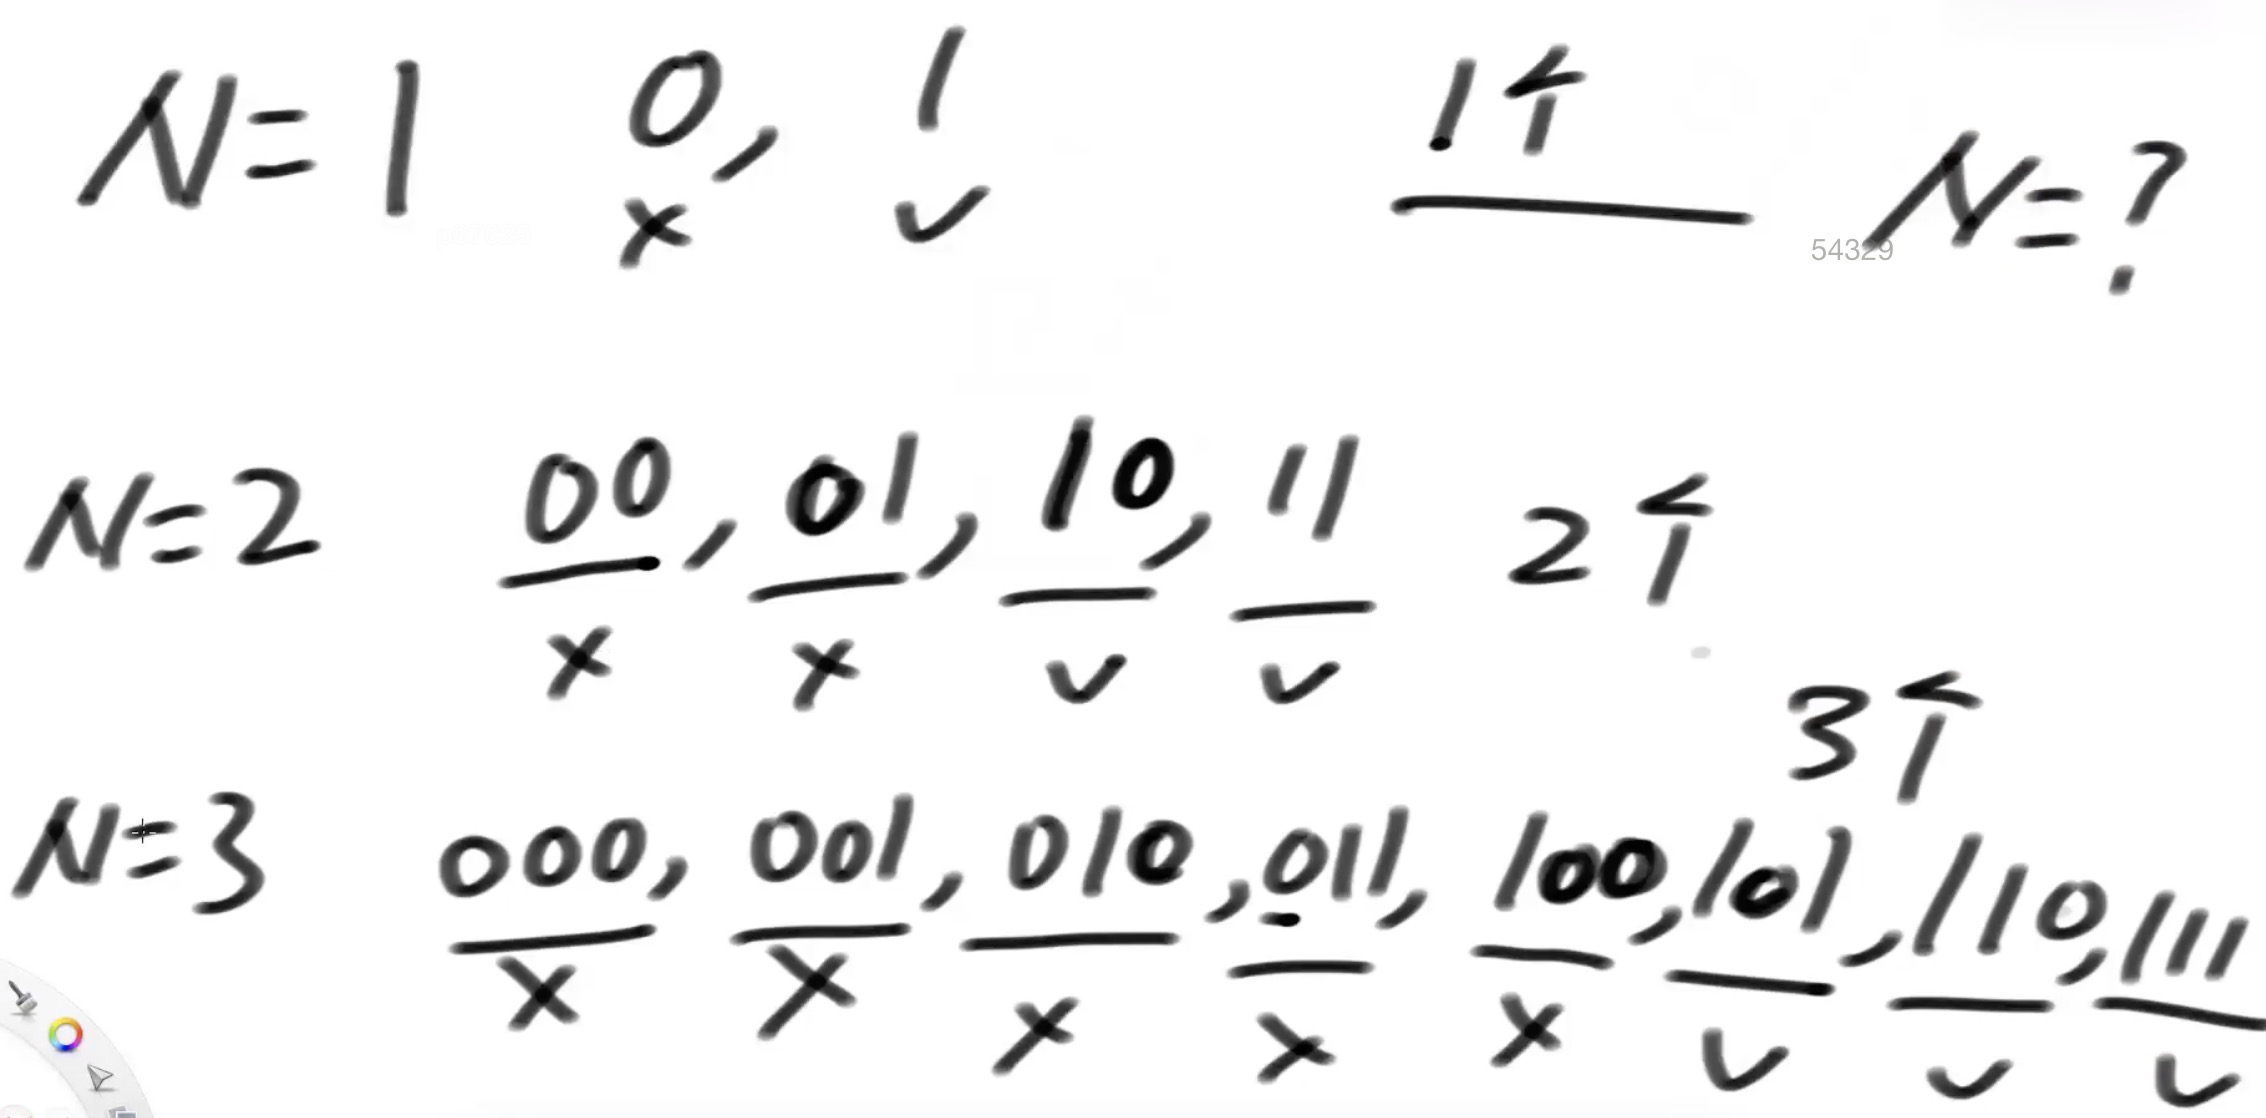 N=1 0, 1 1个 N=?
54329
x v
N=2 00, 01, 10, 11 2个
x x v v
3个
N=3 000, 001, 010, 011, 100, 101, 110, 111
x x x x x v v v